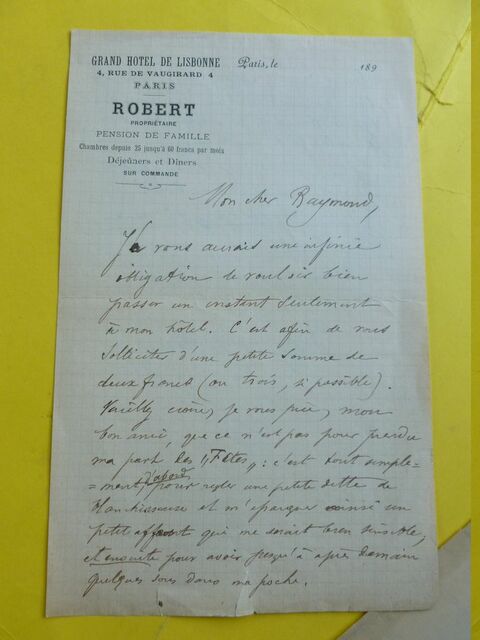 GRAND HOTEL DE LISBONNE
4, RUE DE VAUGIRARD 4
PARIS
ROBERT
PROPRIÉTAIRE
PENSION DE FAMILLE
Chambres depuis 25 jusqu'à 60 francs par mois
Déjeûners et Dîners
SUR COMMANDE
Paris, le 189
Mon cher Raymond,
Je vous aurais une infinie
obligation de vouloir bien
passer un instant seulement
à mon hôtel. C'est afin de vous
solliciter d'une petite somme de
deux francs (ou trois, si possible).
Veuillez croire, je vous prie, mon
bon ami, que ce n'est pas pour prendre
ma part des "Fêtes" : c'est tout simple-
=ment d'abord pour régler une petite dette de
blanchisseuse et m'épargner ainsi un
petit affront qui me serait bien sensible,
et ensuite pour avoir jusqu'à après demain
quelques sous dans ma poche.